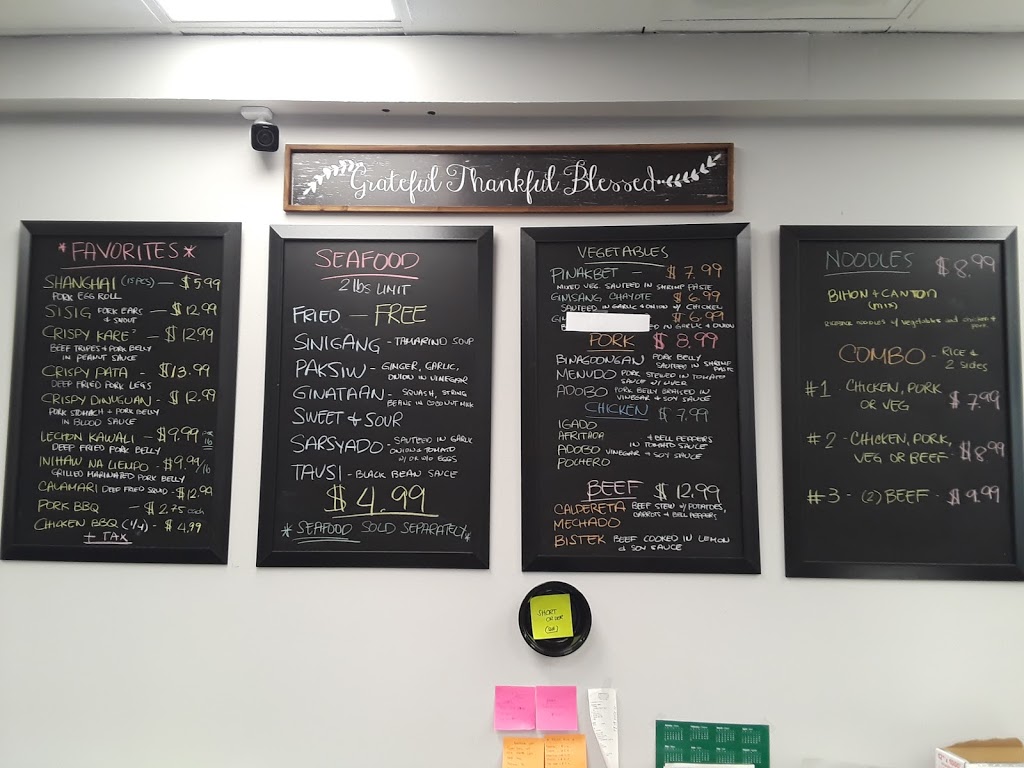 Grateful Thankful Blessed
*FAVORITES*
SHANGHAI (15PCS) - $5.99
PORK EGG ROLL
SISIG PORK EARS - $12.99
+ SNOUT
CRISPY KARE² - $12.99
BEEF TRIPES + PORK BELLY
IN PEANUT SAUCE
CRISPY PATA - $13.99
DEEP FRIED PORK LEGS
CRISPY DINUGUAN - $12.99
PORK STOMACH + PORK BELLY
IN BLOOD SAUCE
LECHON KAWALI - $9.99 PER LB
DEEP FRIED PORK BELLY
INIHAW NA LIEMPO - $9.99/lb
GRILLED MARINATED PORK BELLY
CALAMARI DEEP FRIED SQUID - $12.99
PORK BBQ - $2.75 each
CHICKEN BBQ (1/4) - $4.99
+ TAX
SEAFOOD
2 lbs LIMIT
FRIED - FREE
SINIGANG - TAMARIND SOUP
PAKSIW - GINGER, GARLIC,
ONION IN VINEGAR
GINATAAN - SQUASH, STRING
BEANS IN COCONUT MILK
SWEET & SOUR
SARSYADO - SAUTEED IN GARLIC
ONION & TOMATO
W/ OR W/O EGGS
TAUSI - BLACK BEAN SAUCE
$4.99
*SEAFOOD SOLD SEPARATELY*
VEGETABLES
PINAKBET - $7.99
MIXED VEG SAUTEED IN SHRIMP PASTE
GINISANG CHAYOTE $6.99
SAUTEED IN GARLIC & ONION W/ CHICKEN
$6.99
IN GARLIC & ONION
PORK $8.99
BINAGOONGAN PORK BELLY
SAUTEED IN SHRIMP
PASTE
MENUDO PORK STEWED IN TOMATO
SAUCE W/ LIVER
ADOBO PORK BELLY BRAISED IN
VINEGAR & SOY SAUCE
CHICKEN $7.99
IGADO
AFRITADA + BELL PEPPERS
IN TOMATO SAUCE
ADOBO VINEGAR + SOY SAUCE
POCHERO
BEEF $12.99
CALDERETA BEEF STEW W/ POTATOES,
CARROTS & BELL PEPPERS
MECHADO
BISTEK BEEF COOKED IN LEMON
& SOY SAUCE
NOODLES $8.99
BIHON + CANTON
(MIX)
noodles w/ vegetables and chicken &
pork
COMBO - RICE &
2 SIDES
#1 - CHICKEN, PORK
OR VEG - $7.99
#2 - CHICKEN, PORK,
VEG OR BEEF - $8.99
#3 - (2) BEEF - $9.99
SHORT
ORDER